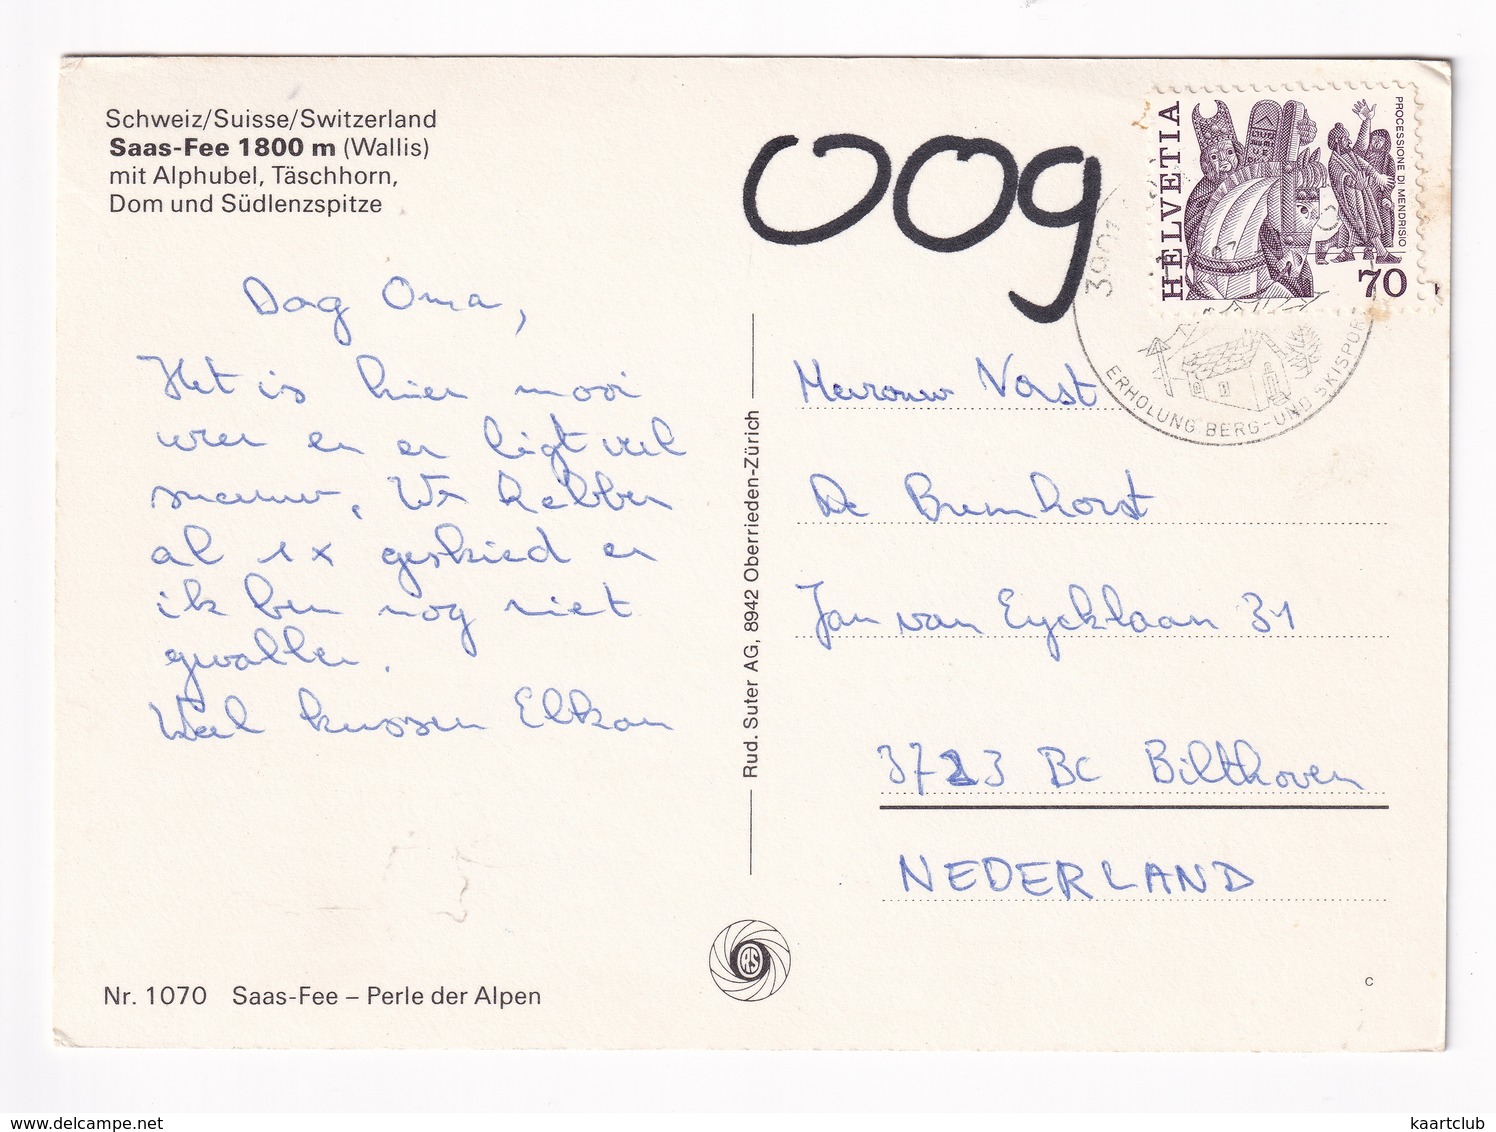 Schweiz/Suisse/Switzerland
Saas-Fee 1800 m (Wallis)
mit Alphubel, Täschhorn,
Dom und Südlenzspitze
Dag Oma,
Het is hier mooi
weer en er ligt veel
sneeuw. We hebben
al 1x geskied en
ik ben nog niet
gevallen.
Veel kussen Elkan
Nr. 1070 Saas-Fee – Perle der Alpen
Rud. Suter AG, 8942 Oberrieden-Zürich
RS
009
HELVETIA
PROCESSIONE DI MENDRISIO
70
ERHOLUNG BERG-UND SKISPOR
Mevrouw Vorst
De Bremhorst
Jan van Eycklaan 31
3723 BC Bilthoven
NEDERLAND
C
www.delcampe.net
kaartclub